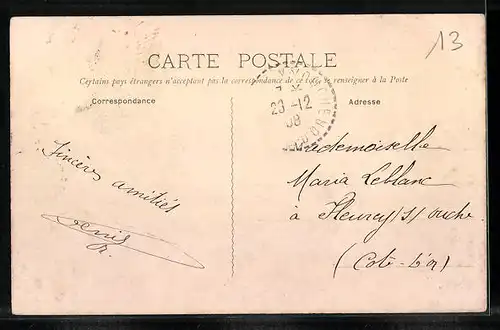 13
CARTE POSTALE
Certains pays étrangers n'acceptant pas la correspondance de ce côté, se renseigner à la Poste
Correspondance
Adresse
23-12
08
Sincères amitiés
Denis
Mademoiselle
Maria Leblanc
à Fleurey s/ ouche
(Cote-d'or)